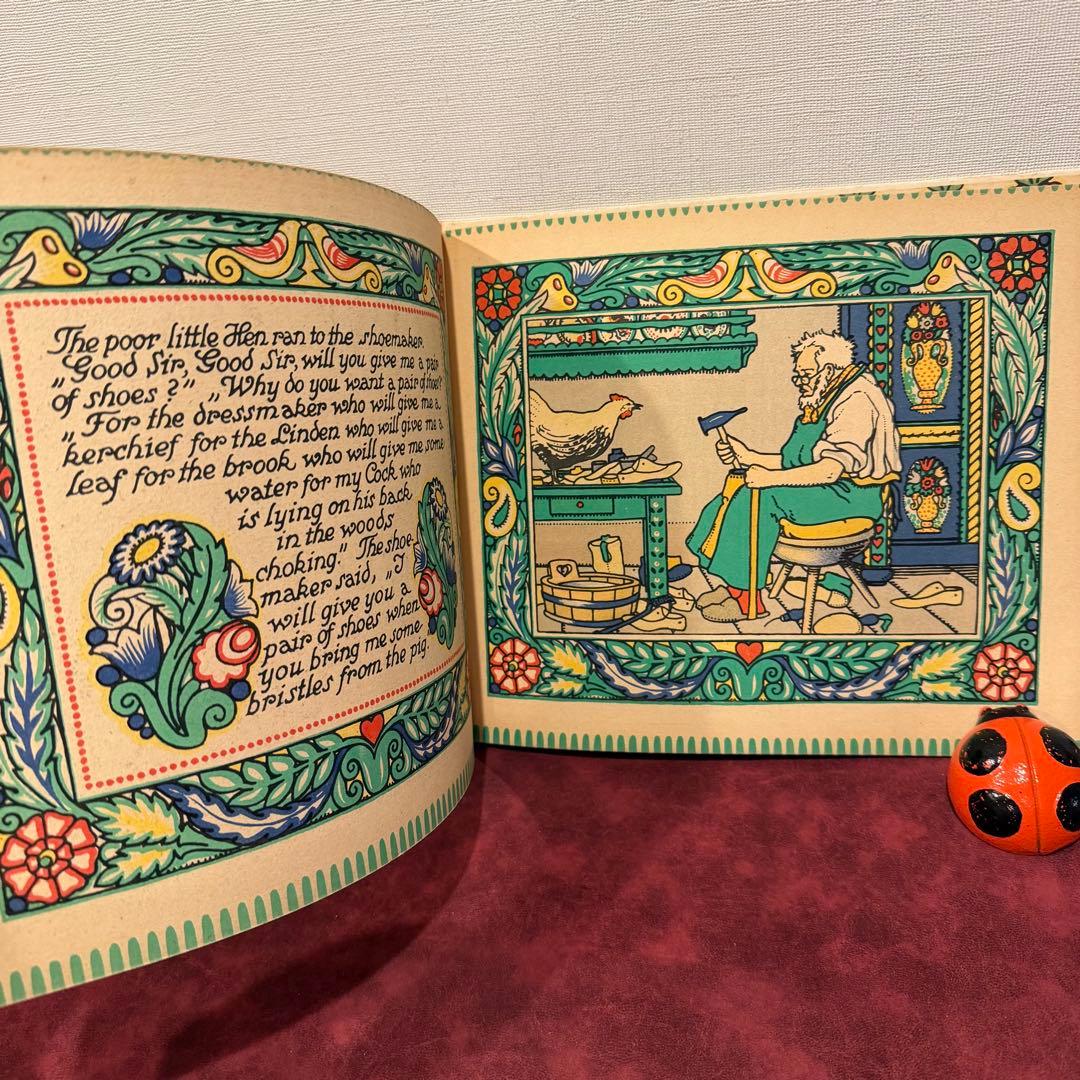 The poor little Hen ran to the shoemaker.
„Good Sir, Good Sir, will you give me a pair
of shoes?” „Why do you want a pair of shoes?”
„For the dressmaker who will give me a
kerchief for the Linden who will give me a
leaf for the brook who will give me some
water for my Cock who
is lying on his back
in the woods
choking.” The shoe-
maker said, „I
will give you a
pair of shoes when
you bring me some
bristles from the pig.